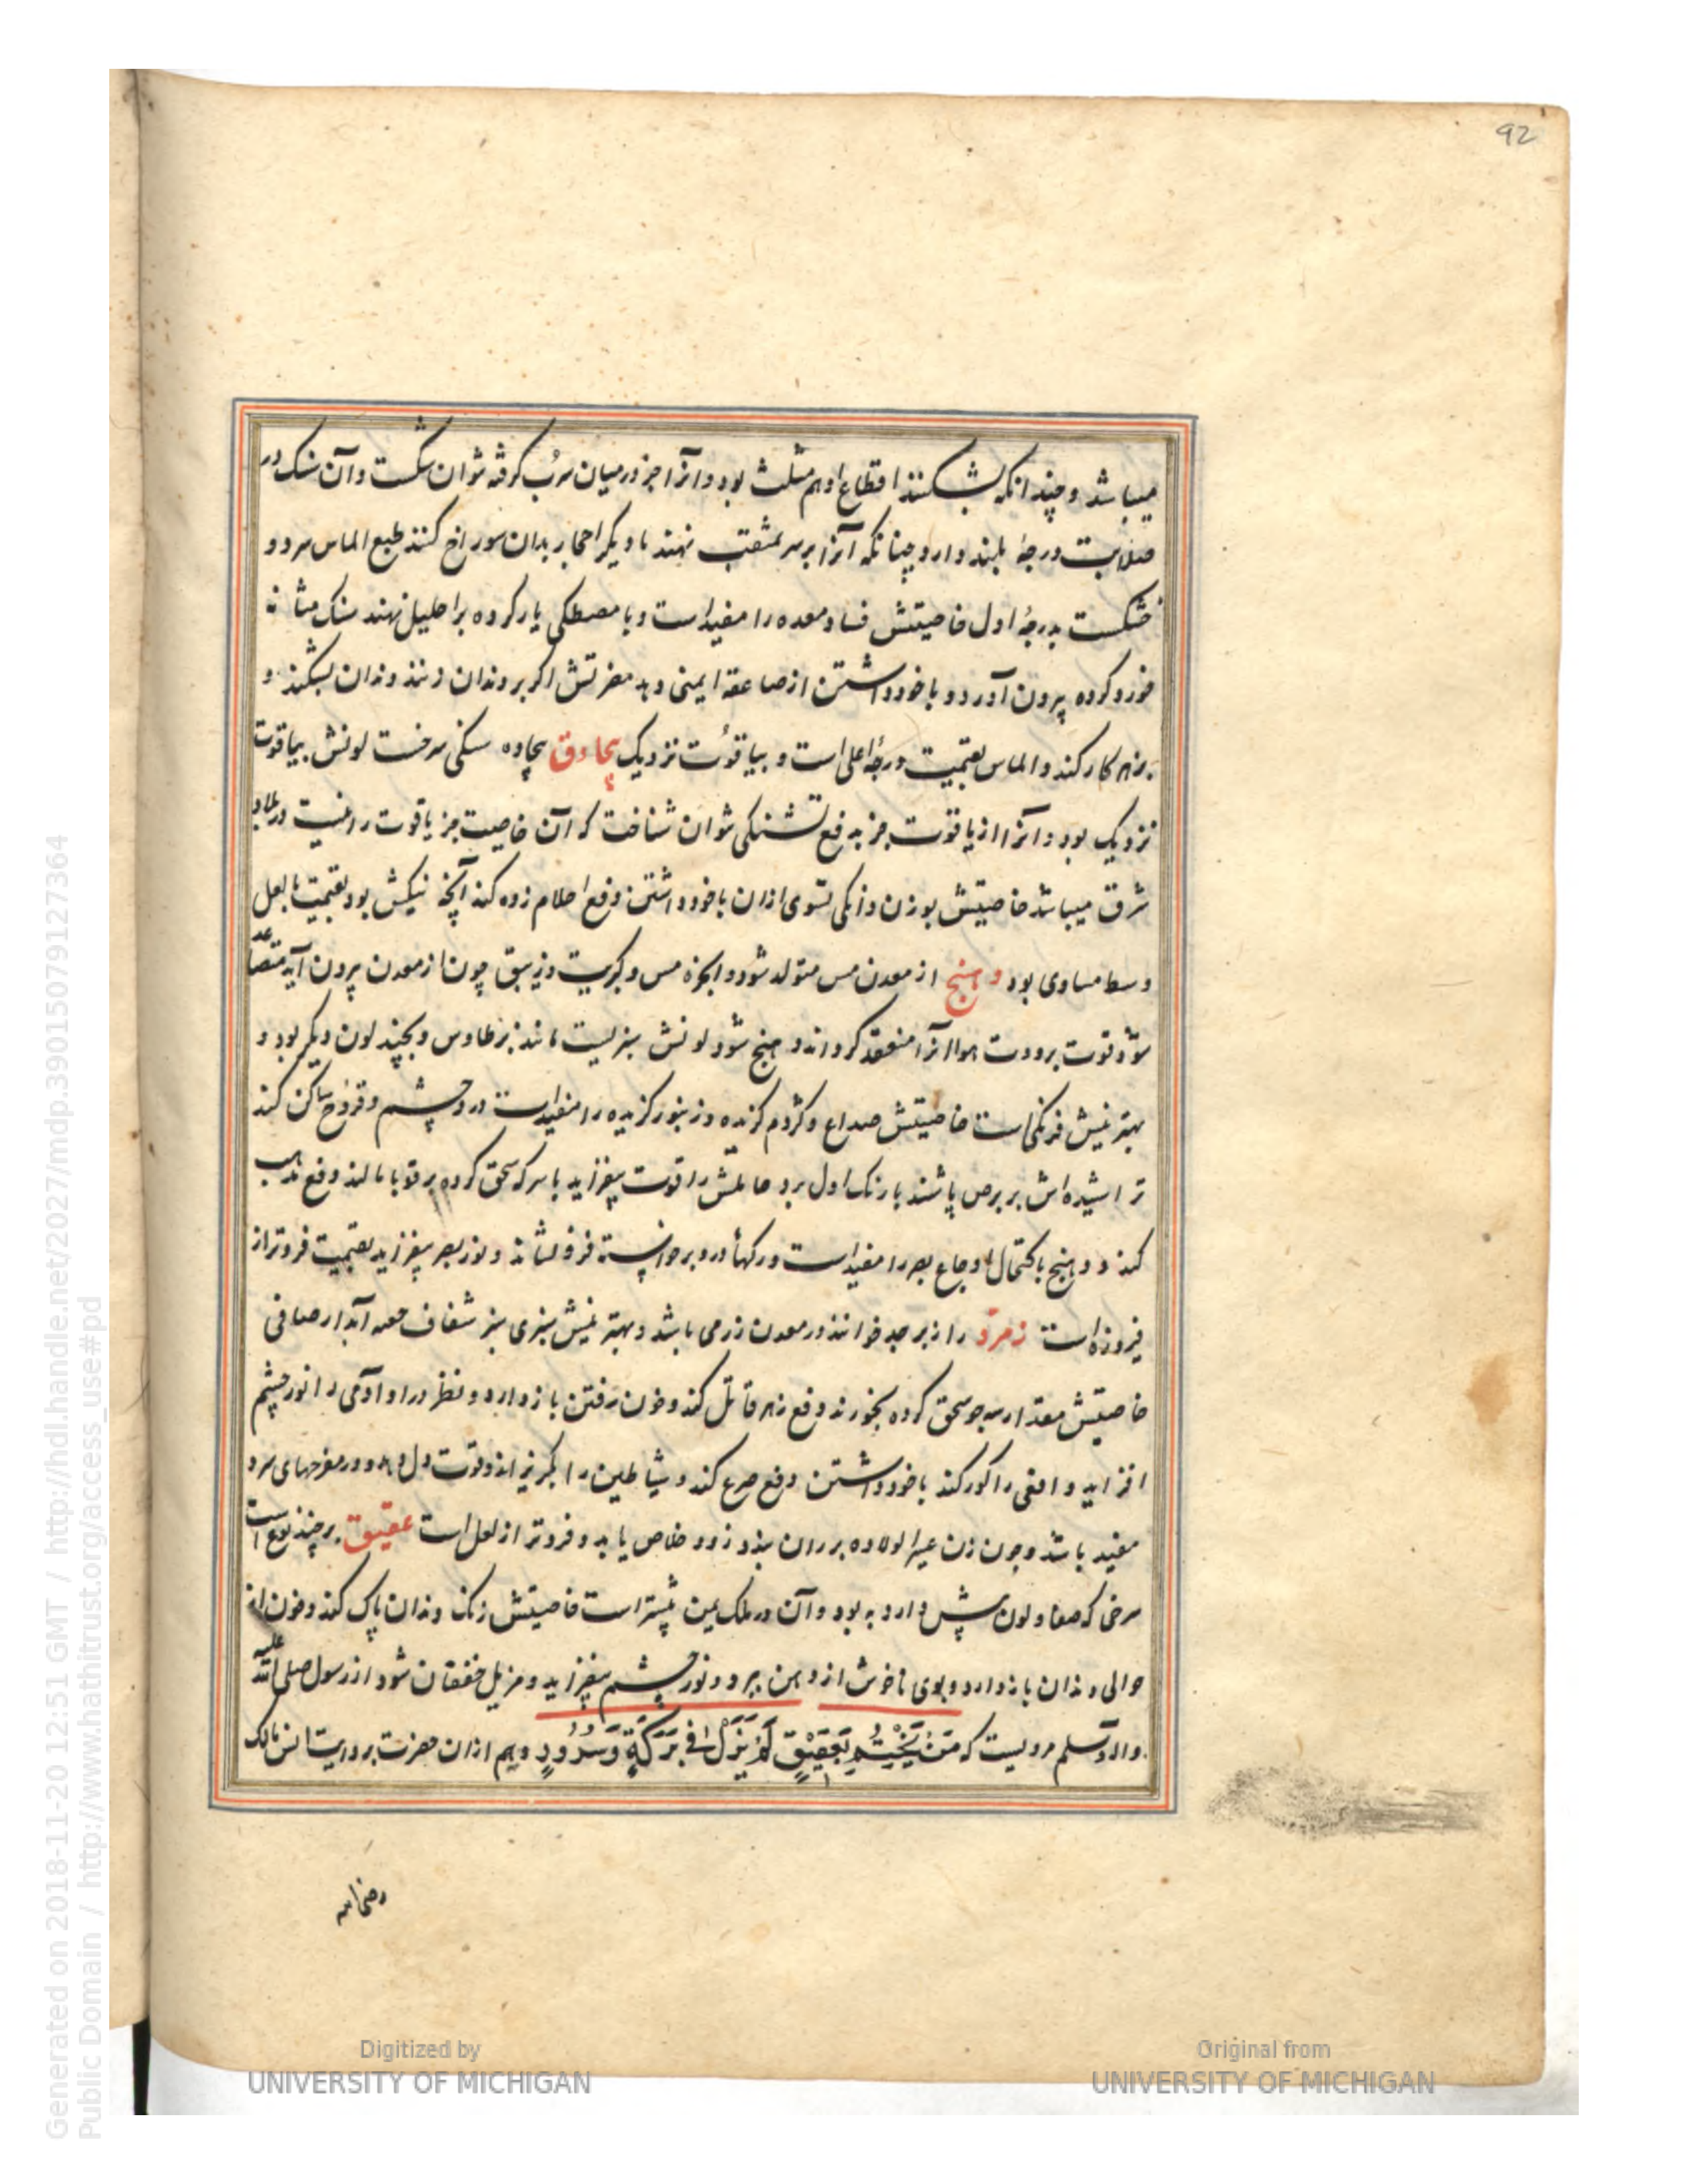 92
میباشد و چندانکه بشکنند اقطاع او هم مثلث بود و آنرا جز در میان سرب کرفته نتوان شکست و آن سنک در
صلابت درجهٔ بلند دارد چنانکه آنرا بر سر مثقب نهند تا دیکر احجار بدان سوراخ کنند طبع الماس سرد و
خشکست بدرجهٔ اول خاصیتش فساد معده را مفیداست و با مصطکی یار کرده بر احلیل نهند سنک مثانه
خورد کرده بیرون آورد و با خود داشتن از صاعقه ایمنی دهد مضرتش اکر بر دندان زنند دندان بشکند و
زهر کار کند و الماس بقیمت درجهٔ اعلی است و بیاقوت نزدیک بجادق بجاده سنکی سرخست لونش بیاقوت
نزدیک بود و آنرا از یاقوت جز بدفع تشنکی نتوان شناخت که آن خاصیت جز یاقوت را نیست در بلاد
شرق میباشد خاصیتش بوزن دانکی تسوی ازان با خود داشتن دفع احلام زده کند آنچه نیکش بود بقیمت با لعل
وسط مساوی بود دهنج از معدن مس متولد شود و ابخرهٔ مس و کبریت و زیبق چون از معدن بیرون آید متصاعد
شود قوت برودت هوا آنرا منعقد کرداند دهنج شود لونش سبزیست مانند پر طاوس و بچند لون دیکر بود و
بهترینش فرنکی است خاصیتش صداع و کژدم کزیده و زنبور کزیده را مفیداست درد چشم و قروح ساکن کند
تراشیده‌اش بر برص پاشند با رنک اول برد حاملش را قوت بیفزاید با سرکه سحق کرده بر قوبا مالند دفع
کند و دهنج باکتحال اوجاع بصر را مفیداست و رکها درو برخواسته فرو نشاند و نور بصر بیفزاید بقیمت فروتر از
فیروزه است زمرد را زبرجد خوانند در معدن زر می باشد و بهترینش سبزی سبز شفاف آبدار صافی
خاصیتش مقدار سه جو سحق کرده بخورند دفع زهر قاتل کند و خون رفتن باز دارد و نظر در او آدمی را نور چشم
افزاید و افعی را کور کند با خود داشتن دفع صرع کند و شیاطین را بکریزاند و قوت دل دهد و در مفرحهای سرد
مفید باشد و چون زن عسر الولاده بر ران بندد زود خلاص یابد و فروتر از لعل است عقیق بر چند نوع است
سرخی که صفا و لون بیش دارد به بود و آن در ملک یمن بیشتر است خاصیتش زنک دندان پاک کند و خون از
حوالی دندان باز دارد و بوی ناخوش از دهن ببرد و نور چشم بیفزاید و مزیل خفقان شود از رسول صلی الله علیه
واله وسلم مرویست که مَنْ تَخَتَّمَ بِعَقِیْقٍ لَمْ یَزَلْ فی بَرَکَةٍ وَسُرُورٍ و هم ازان حضرت بروایت انس مالک
رضی الله